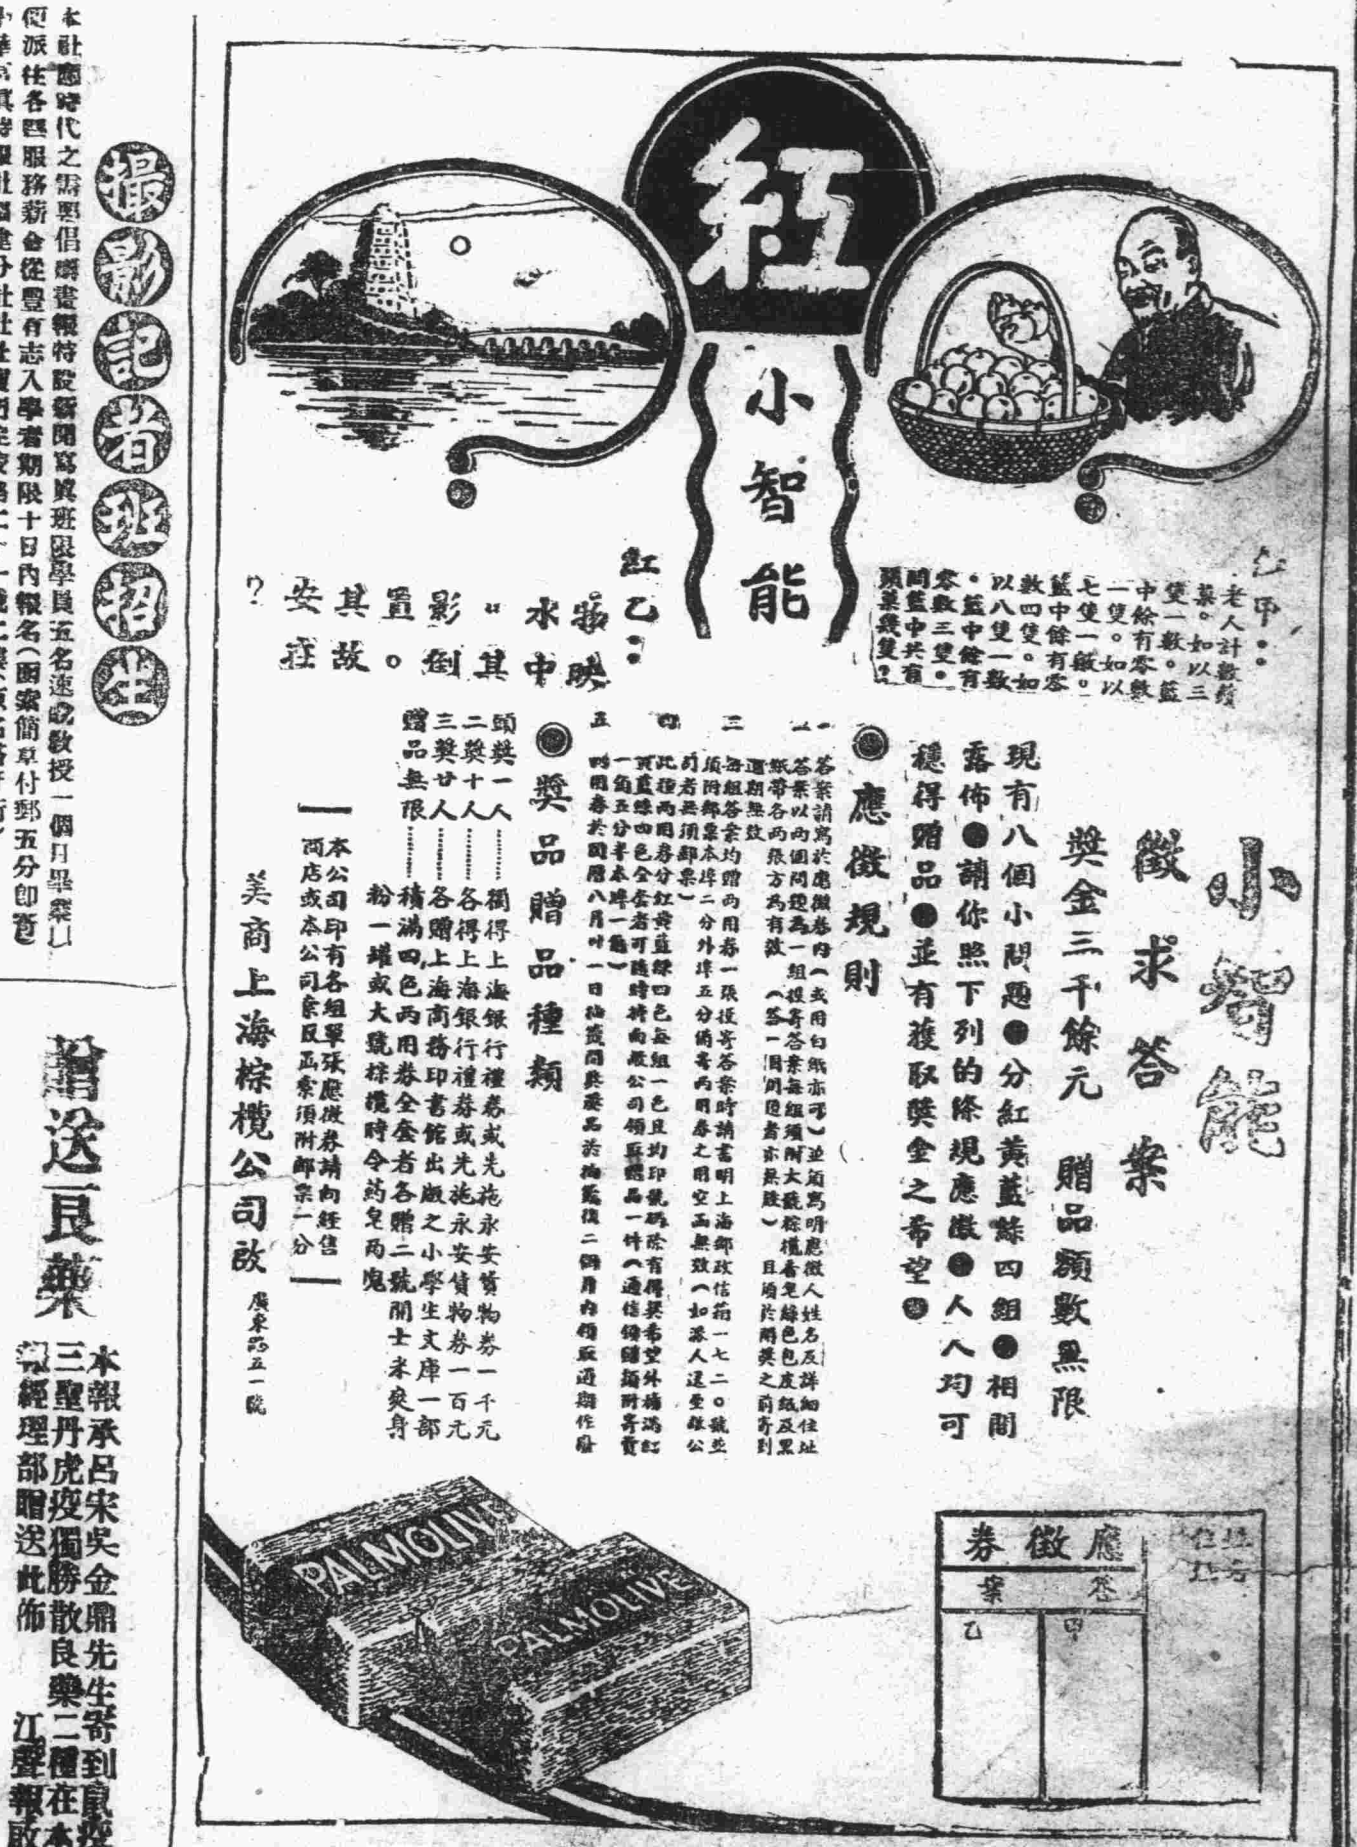 紅
小智能
老人計數蘋
菓。如以三
雙一數。籃
中餘有零數
一雙。如以
七雙一數。
籃中餘有零
數四雙。如
以八雙一數
。籃中餘有
零數三雙。
問籃中共有
頭菓幾雙？
紅乙：
物映
水中
。其
影倒
置。
其故
安在
？
小智能
徵求答案
獎金三千餘元 贈品額數無限
現有八個小問題●分紅黃藍綠四組●相間
露佈●請你照下列的條規應徵●人人均可
穩得贈品●並有獲取獎金之希望●
◉應徵規則
一 答案請寫於應徵券內（或用白紙亦可）並須寫明應徵人姓名及詳細住址
二 答案以兩個問題為一組投寄答案每組須附大號棕欖香皂綠色包皮紙及黑
紙帶各兩張方為有效（答一個問題者亦無效）且須於開獎之前寄到
過期無效
三 每組答案均贈兩用券一張投寄答案時請書明上海郵政信箱一七二〇號並
須附郵票本埠二分外埠五分備寄兩用券之用空函無效（如派人送至敝公
司者無須郵票）
四 此種兩用券分紅黃藍綠四色每組一色且均印號碼除有得獎希望外積滿紅
黃藍綠四色全套者可隨時持向敝公司領取贈品一件（通信領贈須附寄費
一角五分半本埠一角）
五 兩用券於國曆八月卅一日抽籤開獎獎品於抽籤後二個月內領取過期作廢
◉獎品贈品種類
頭獎一人………獨得上海銀行禮券或先施永安貨物券一千元
二獎十人………各得上海銀行禮券或先施永安貨物券一百元
三獎廿人………各贈上海商務印書館出版之小學生文庫一部
贈品無限………積滿四色兩用券全套者各贈二號開士米爽身
粉一罐或大號棕欖時令葯皂兩塊
本公司印有各組單張應徵券請向經售
商店或本公司索取函索須附郵票一分
美商上海棕欖公司啟 廣東路五一號
PALMOLIVE
PALMOLIVE
應徵券
答案
甲
乙
攝影記者班招生
本社應時代之需要倡辦畫報特設新聞寫真班限學員五名速成教授一個月畢業以
便派往各縣服務薪金從豐有志入學者期限十日內報名（函索簡章付郵五分即寄
贈送良藥
本報承呂宋吳金鼎先生寄到鼠疫
三聖丹虎疫獨勝散良藥二種在本
報經理部贈送此佈 江聲報啟